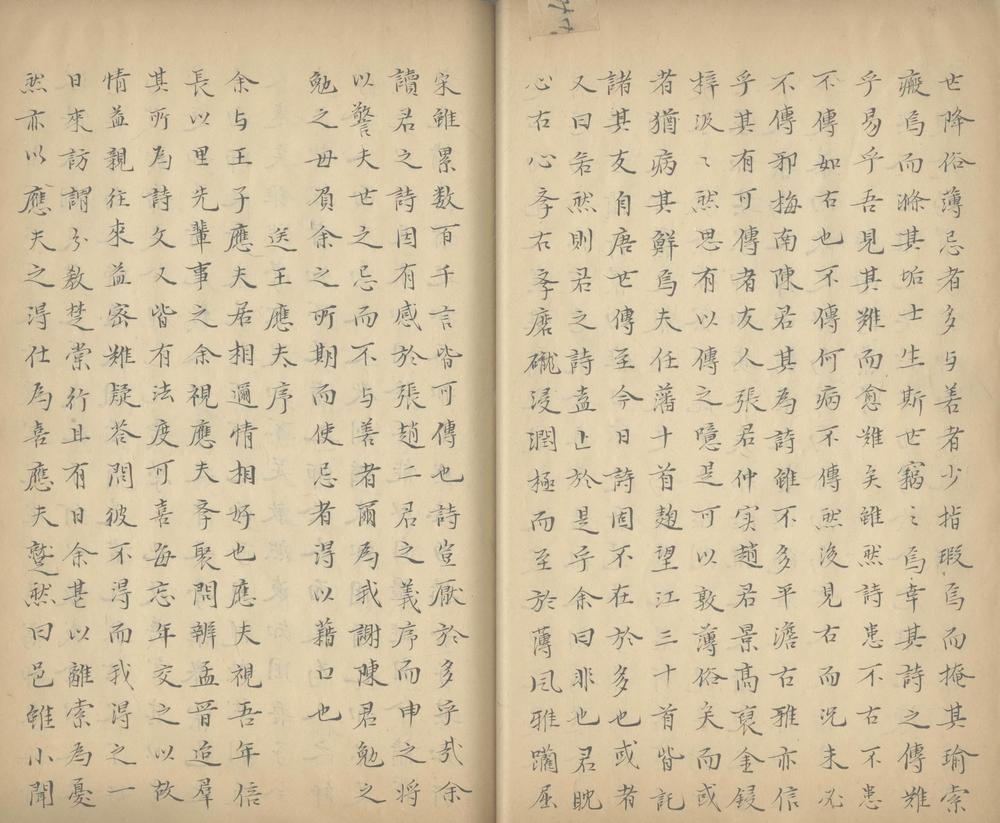 世降俗薄忌者多与善者少指瑕焉而掩其瑜索
瘢焉而滌其垢士生斯世竊〻焉幸其詩之傳難
乎易乎吾見其難而愈難矣雖然詩患不古不患
不傳如右也不傳何病不傳然後見右而况未必
不傳邪梅南陳君其為詩雖不多平澹古雅亦信
乎其有可傳者友人張君仲实趙君景高裒金鋟
梓汲〻然思有以傳之噫是可以敦薄俗矣而或
者猶病其鮮焉夫任藩十首趙望江三十首皆託
諸其友自唐世傳至今日詩固不在於多也或者
又曰若然則君之詩盍止於是乎余曰非也君晚
心右心李右李磨礲浸潤極而至於薄風雅躪屈
宋雖累数百千言皆可傳也詩豈厭於多乎哉余
讀君之詩因有感於張趙二君之義序而申之將
以警夫世之忌而不与善者爾為我謝陳君勉之
勉之毋負余之所期而使忌者得以藉口也
送王應夫序
余与王子應夫居相邇情相好也應夫視吾年信
長以里先輩事之余視應夫李聚問辨孟晋迨羣
其所為詩文又皆有法度可喜每忘年交之以故
情益親往來益密難疑荅問彼不得而我得之一
日來訪謂分教楚棠行且有日余甚以離索為憂
然亦以應夫之得仕為喜應夫蹙然曰邑雖小聞